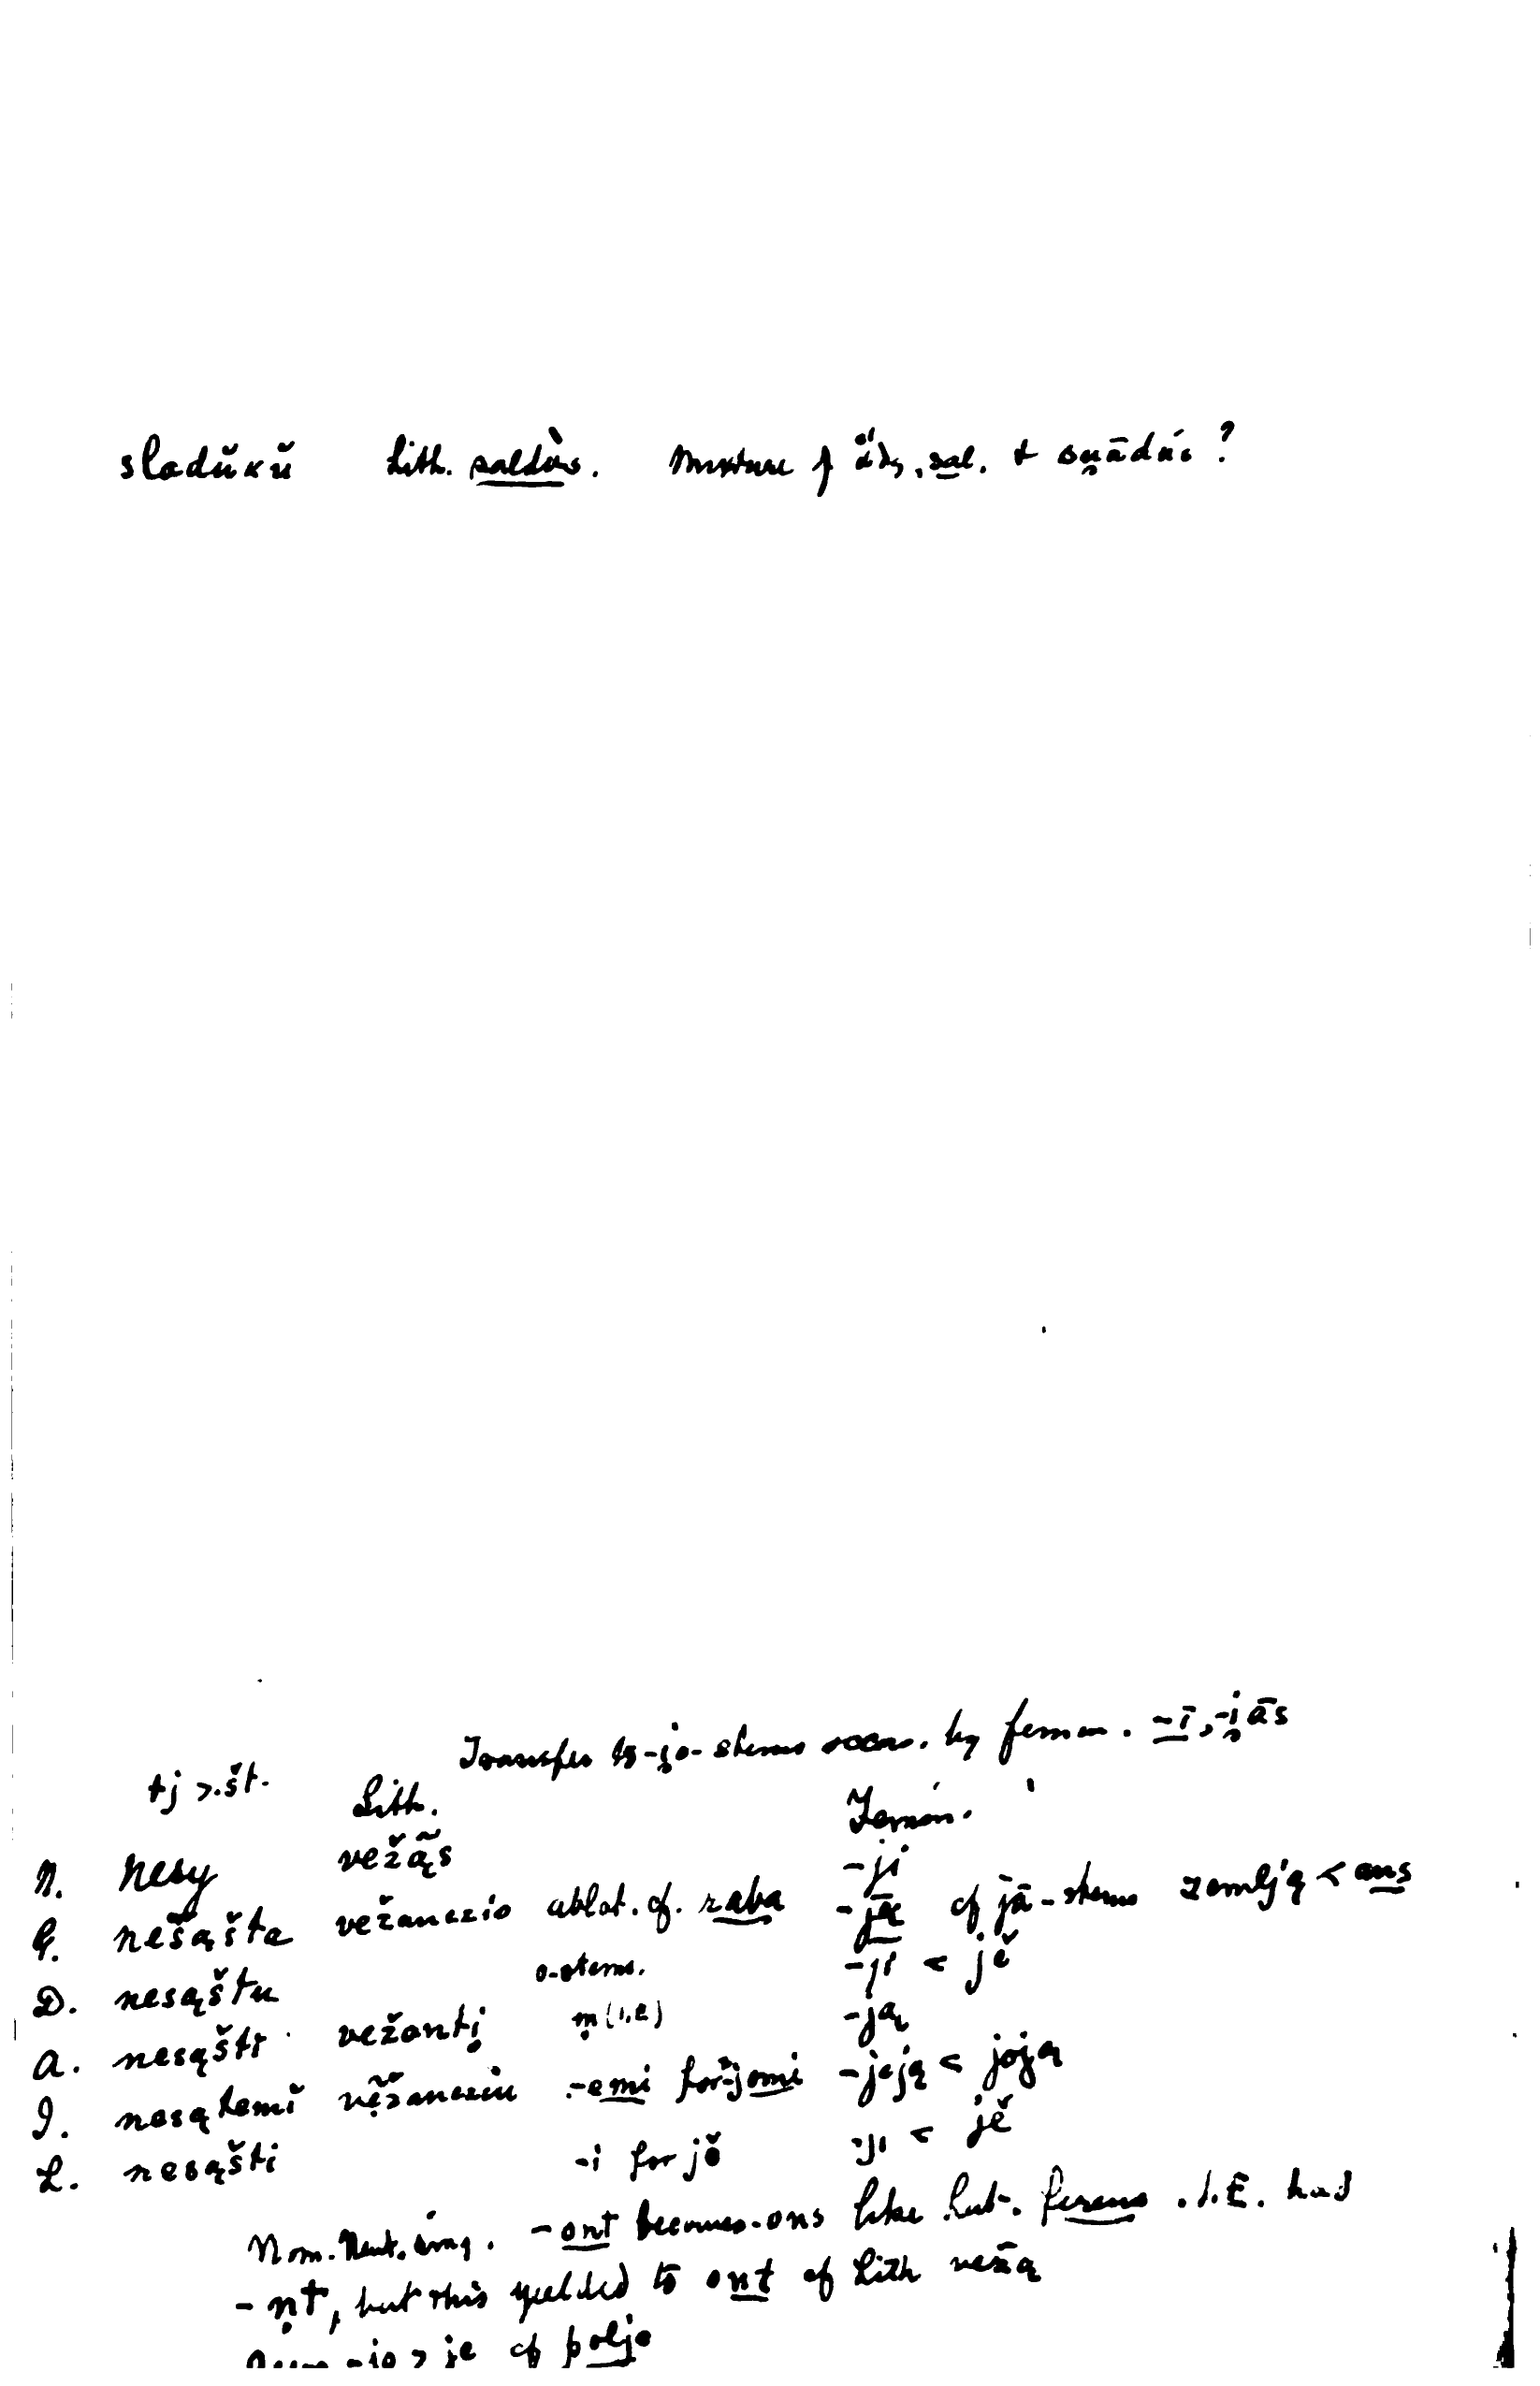 sladŭkŭ Lith. saldùs. Mixture of ἅλς, sal. + su̯ādús ?
Transfer to -i̯o- stems occas. by femin. -ī, -i̯ās
tj > št. Lith. Femin.
N. nesy vežą̃s -ji
G. nešąšta vežanczio ablat. cf. raba -ję cf jā-stems zemlję < ans
D. nesąštu o-stems. -ji < jě
A. nesąštĭ vežantį m̥ (i, e) -ją
I. nesątemĭ vežancziu -emi for -jomi -jeją < joją
L. nesąšti -i for jǒ -ji < jě
Nom. Neut. sing. -ont becomes -ons like Lat. ferens . I.E. had
- n̥t, but this yielded to ont cf Lith vežą
-io > je cf polje